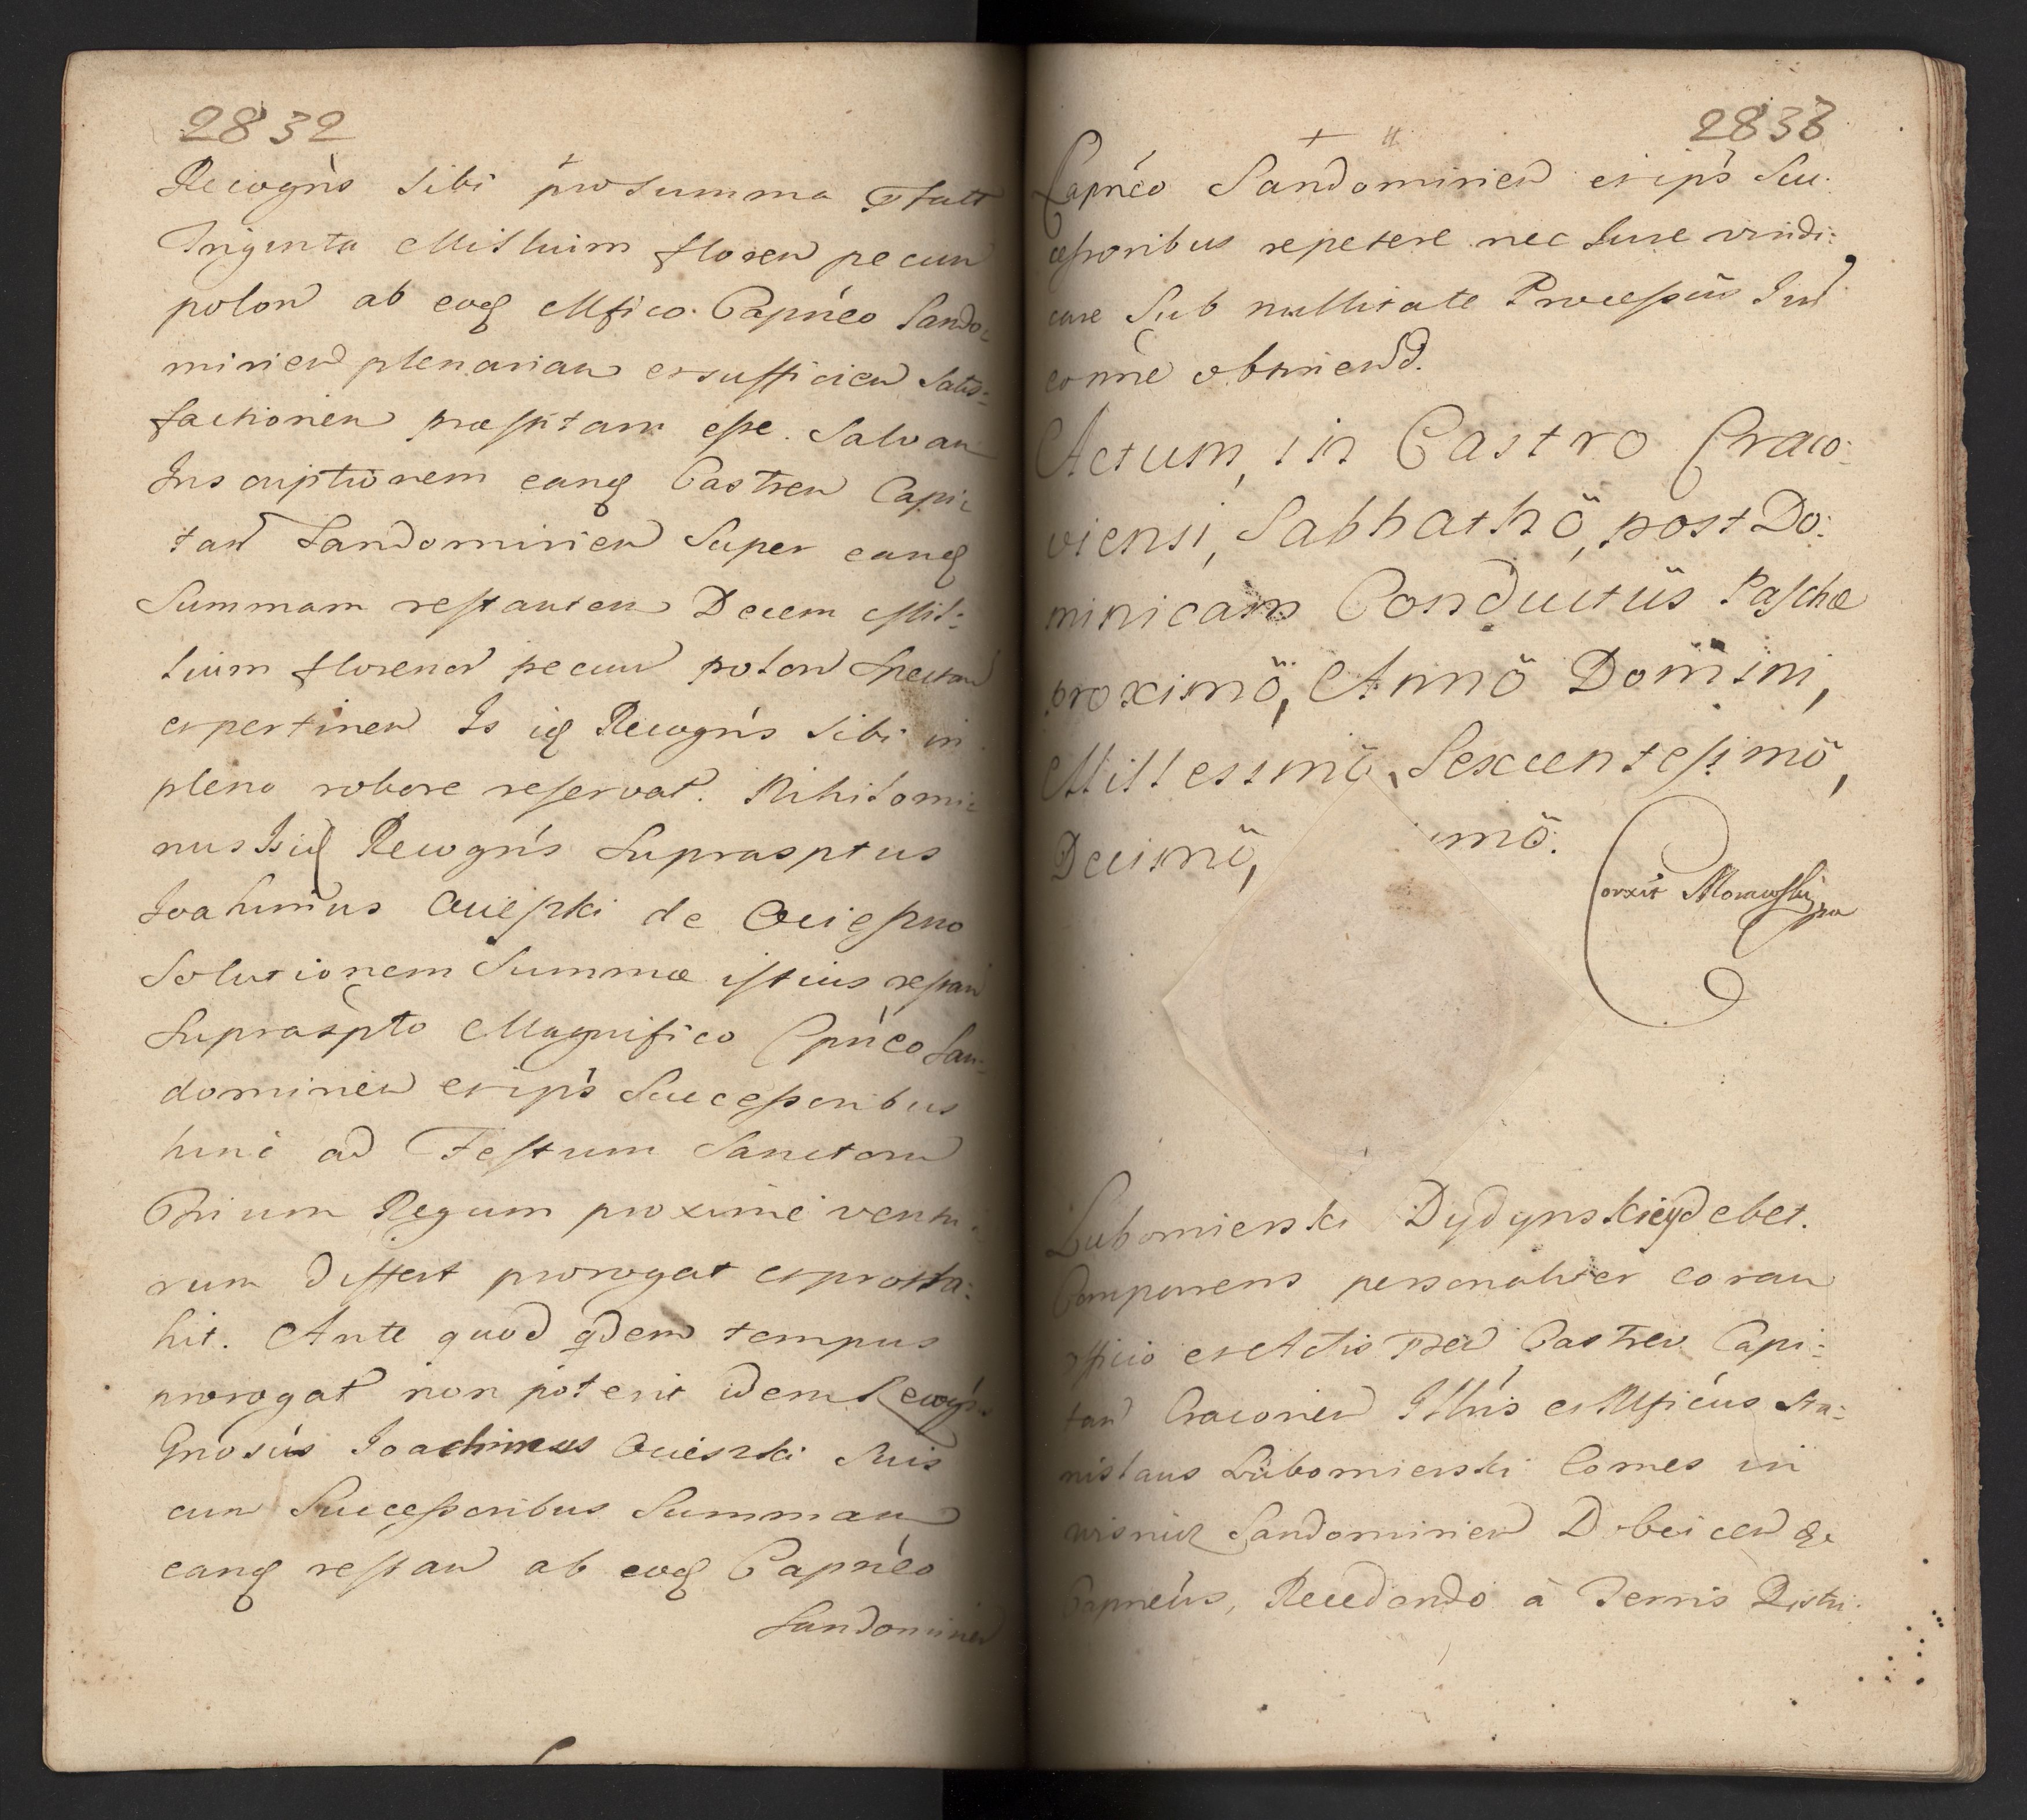 2832
Recogn's sibi pro summa
Triginta Millium floren pecun
polon ab eoq Mfico. Capnéo Sando:
mirien plenarian et sufficien Satis:
factionen præstitam esse. Salvan
Inscriptionem eanq Castren Capi:
tan Sandomirien Super eanq
Summam restanten Decem Mil:
lium florenor pecun polon Spectan
et pertinen Is iq Recogn's sibi in
pleno robore reservat. Nihilomi:
nus Isiq Recogn's Suprasptus
Joahimus Ociesski de Ociessno
Solutionem Summæ istius restan
Supraspto Magnifico Cpnéo San:
domirien et ips Successoribus
hinc ad Festum Sanctorn
Trium Regum proximé ventu:
rum differt prorogat et protra:
hit. Ante quod qdem tempus
prorogat non poterit idem Recogn's
Gnosus Joachimus Ocieszki suis
cum Successoribus Summam
eanq restan ab eoq Capnéo
Sandomirien
2833
Capnéo Sandomirien et ips Suc:
cessoribus repetere nec Jure vindi:
care Sub nullitate Processus Jur
eonne obtinend.
Actum, in Castro Craco:
viensi, Sabbathö, post Do:
minicam Conductüs Paschæ
proximö, Annö Domini,
Millessimö, Sexcentesimö,
Decimö, imö.
Corxit Morawski
Lubomierski Dydynskiey debet.
Comparens personaliter coran
officio et Actis Castren Capi:
tan Cracovien Illris et Mficus Sta:
nislaus Lubomierski Comes in
wisnicz Sandomirien Dobcicen &
Capnéus, Recedendo à Terris Distri: